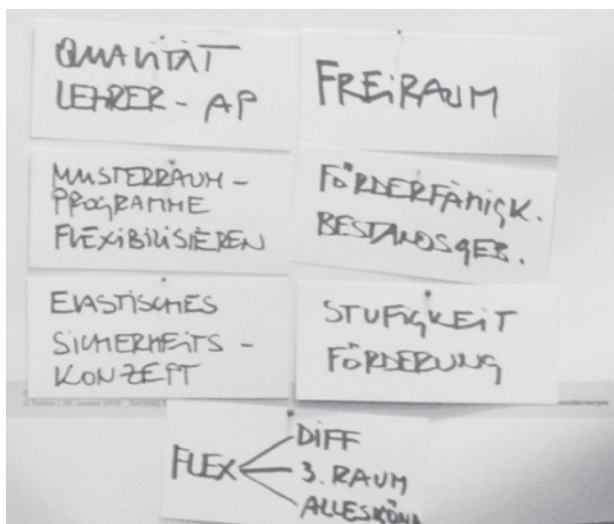 QUALITÄT
LEHRER - AP
FREIRAUM
MUSTERRAUM -
PROGRAMME
FLEXIBILISIEREN
FÖRDERFÄHIGK.
BESTANDSGEB.
ELASTISCHES
SICHERHEITS -
KONZEPT
STUFIGKEIT
FÖRDERUNG
FLEX
DIFF
3. RAUM